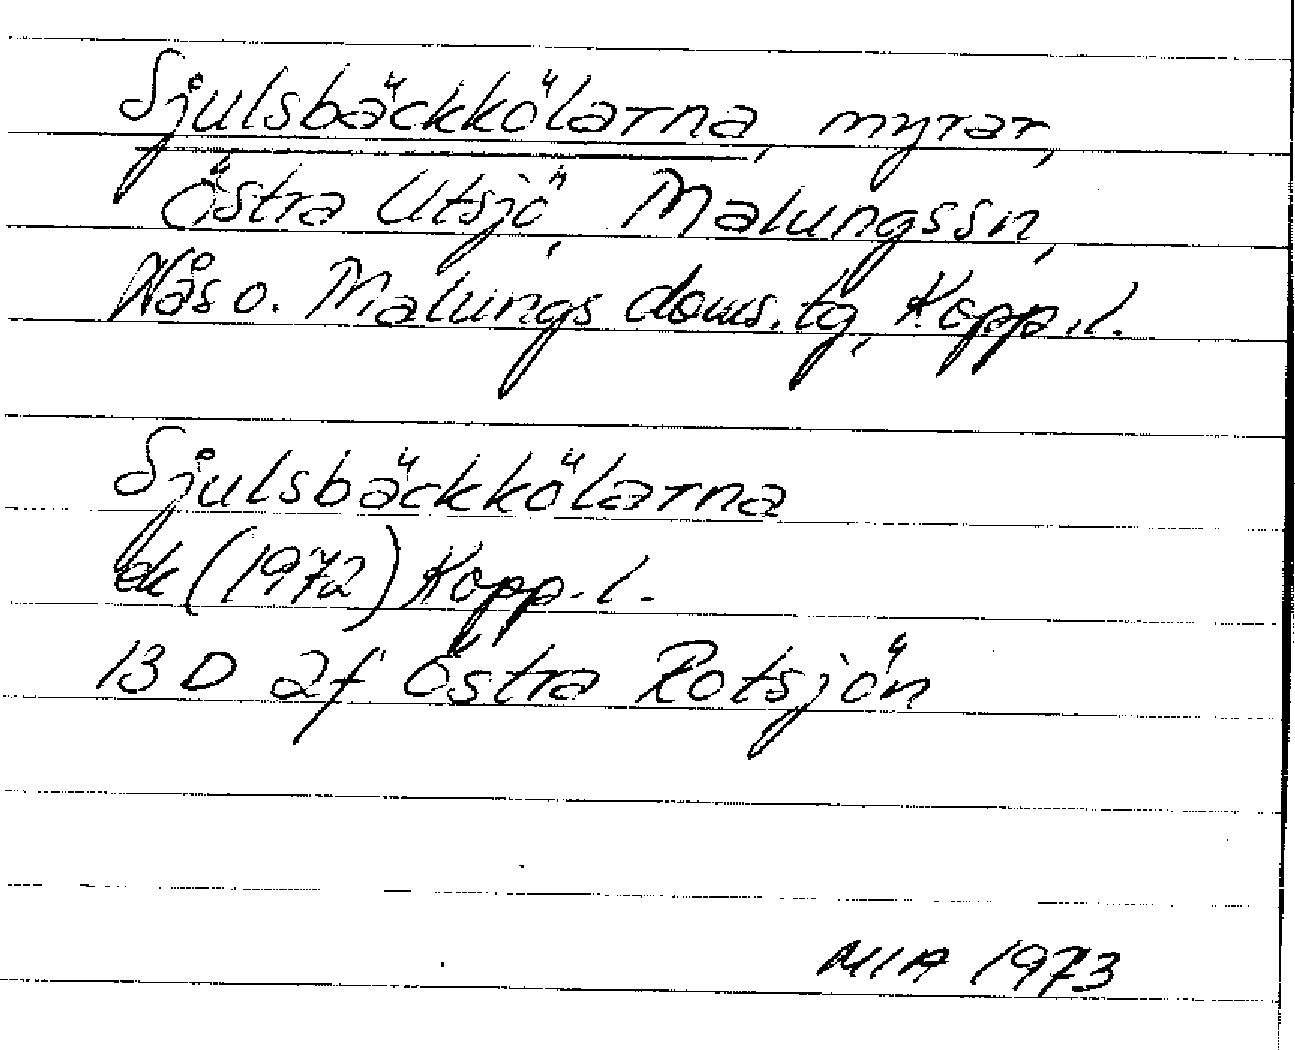 Sjulsbäckkölarna, myrar,
Östra Utsjö, Malungssn,
Nås o. Malungs doms. tg, Kopp.l.
Sjulsbäckkölarna
ek (1972) Kopp.l.
13 D 2f Östra Rotsjön
MIA 1973